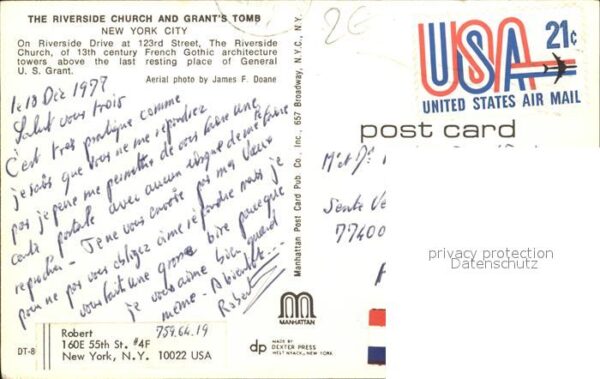 THE RIVERSIDE CHURCH AND GRANT'S TOMB
NEW YORK CITY
On Riverside Drive at 123rd Street, The Riverside
Church, of 13th century French Gothic architecture
towers above the last resting place of General
U. S. Grant.
Aerial photo by James F. Doane
2€
le 18 Déc 1977
Salut vous trois
C'est très pratique comme
je sais que vous ne me répondrez
pas je peux me permettre de vous faire une
carte postale avec aucun risque de me le faire
reprocher. Je ne vous envoie pas mes vœux
pour ne pas vous obliger à me répondre mais je
vous fait une grosse bise parceque
je vous aime bien quand
même. A bientôt...
Robert
Robert 759.64.19
160E 55th St. #4F
New York, N.Y. 10022 USA
DT-8
Manhattan Post Card Pub. Co., Inc., 657 Broadway, N.Y.C., N.Y.
MANHATTAN
dp MADE BY
DEXTER PRESS
WEST NYACK, NEW YORK
USA 21¢
UNITED STATES AIR MAIL
post card
M et
77400
privacy protection
Datenschutz